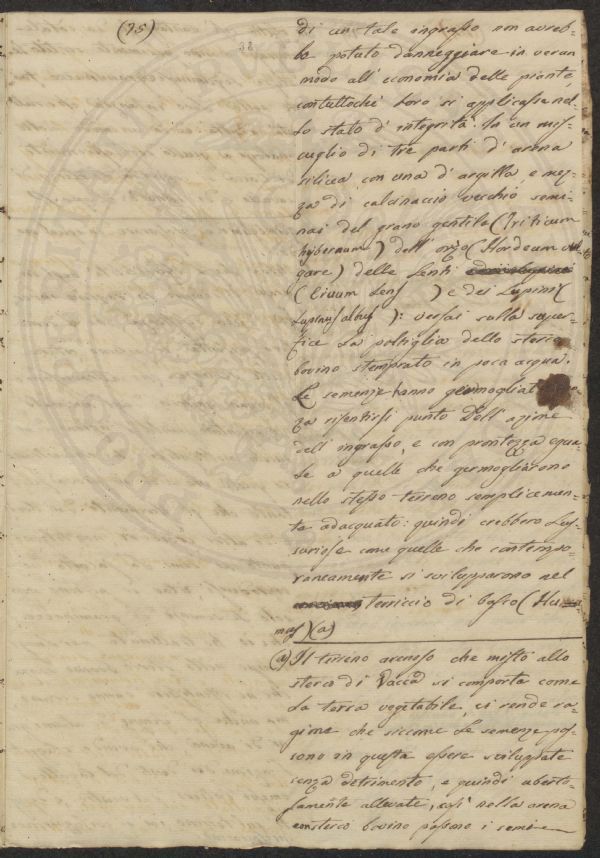 (75)
38
di un tale ingrasso non avreb-
be potuto danneggiare in verun
modo all'economia delle piante,
contuttochè loro si applicasse nel-
lo stato d'integrità. In un mis-
cuglio di tre parti d'arena
silicea con una d'argilla, e mez-
za di calcinaccio vecchio semi-
nai del grano gentile (Triticum
hybernum) dell'orzo (Hordeum vul-
gare) delle Lenti
(Ervum Lens ) e dei Lupini (
Lupinus albus ): versai sulla super-
fice la poltiglia dello sterco
bovino stemprato in poca acqua.
Le semenze hanno germogliat
za risentirsi punto dell'azione
dell'ingrasso, e con prontezza egua-
le a quelle che germogliarono
nello stesso terreno semplicemen-
te adacquato: quindi crebbero lus-
suriose come quelle che contempo-
raneamente si svilupparono nel
terriccio di bosco (Hu-
mus) (a)
(a) Il terreno arenoso che misto allo
sterco di Vacca si comporta come
la terra vegetabile, ci rende ra-
gione che siccome le semenze pos-
sono in questa essere sviluppate
senza detrimento, e quindi uberto-
samente allevate, così nella arena
con sterco bovino possono i semi